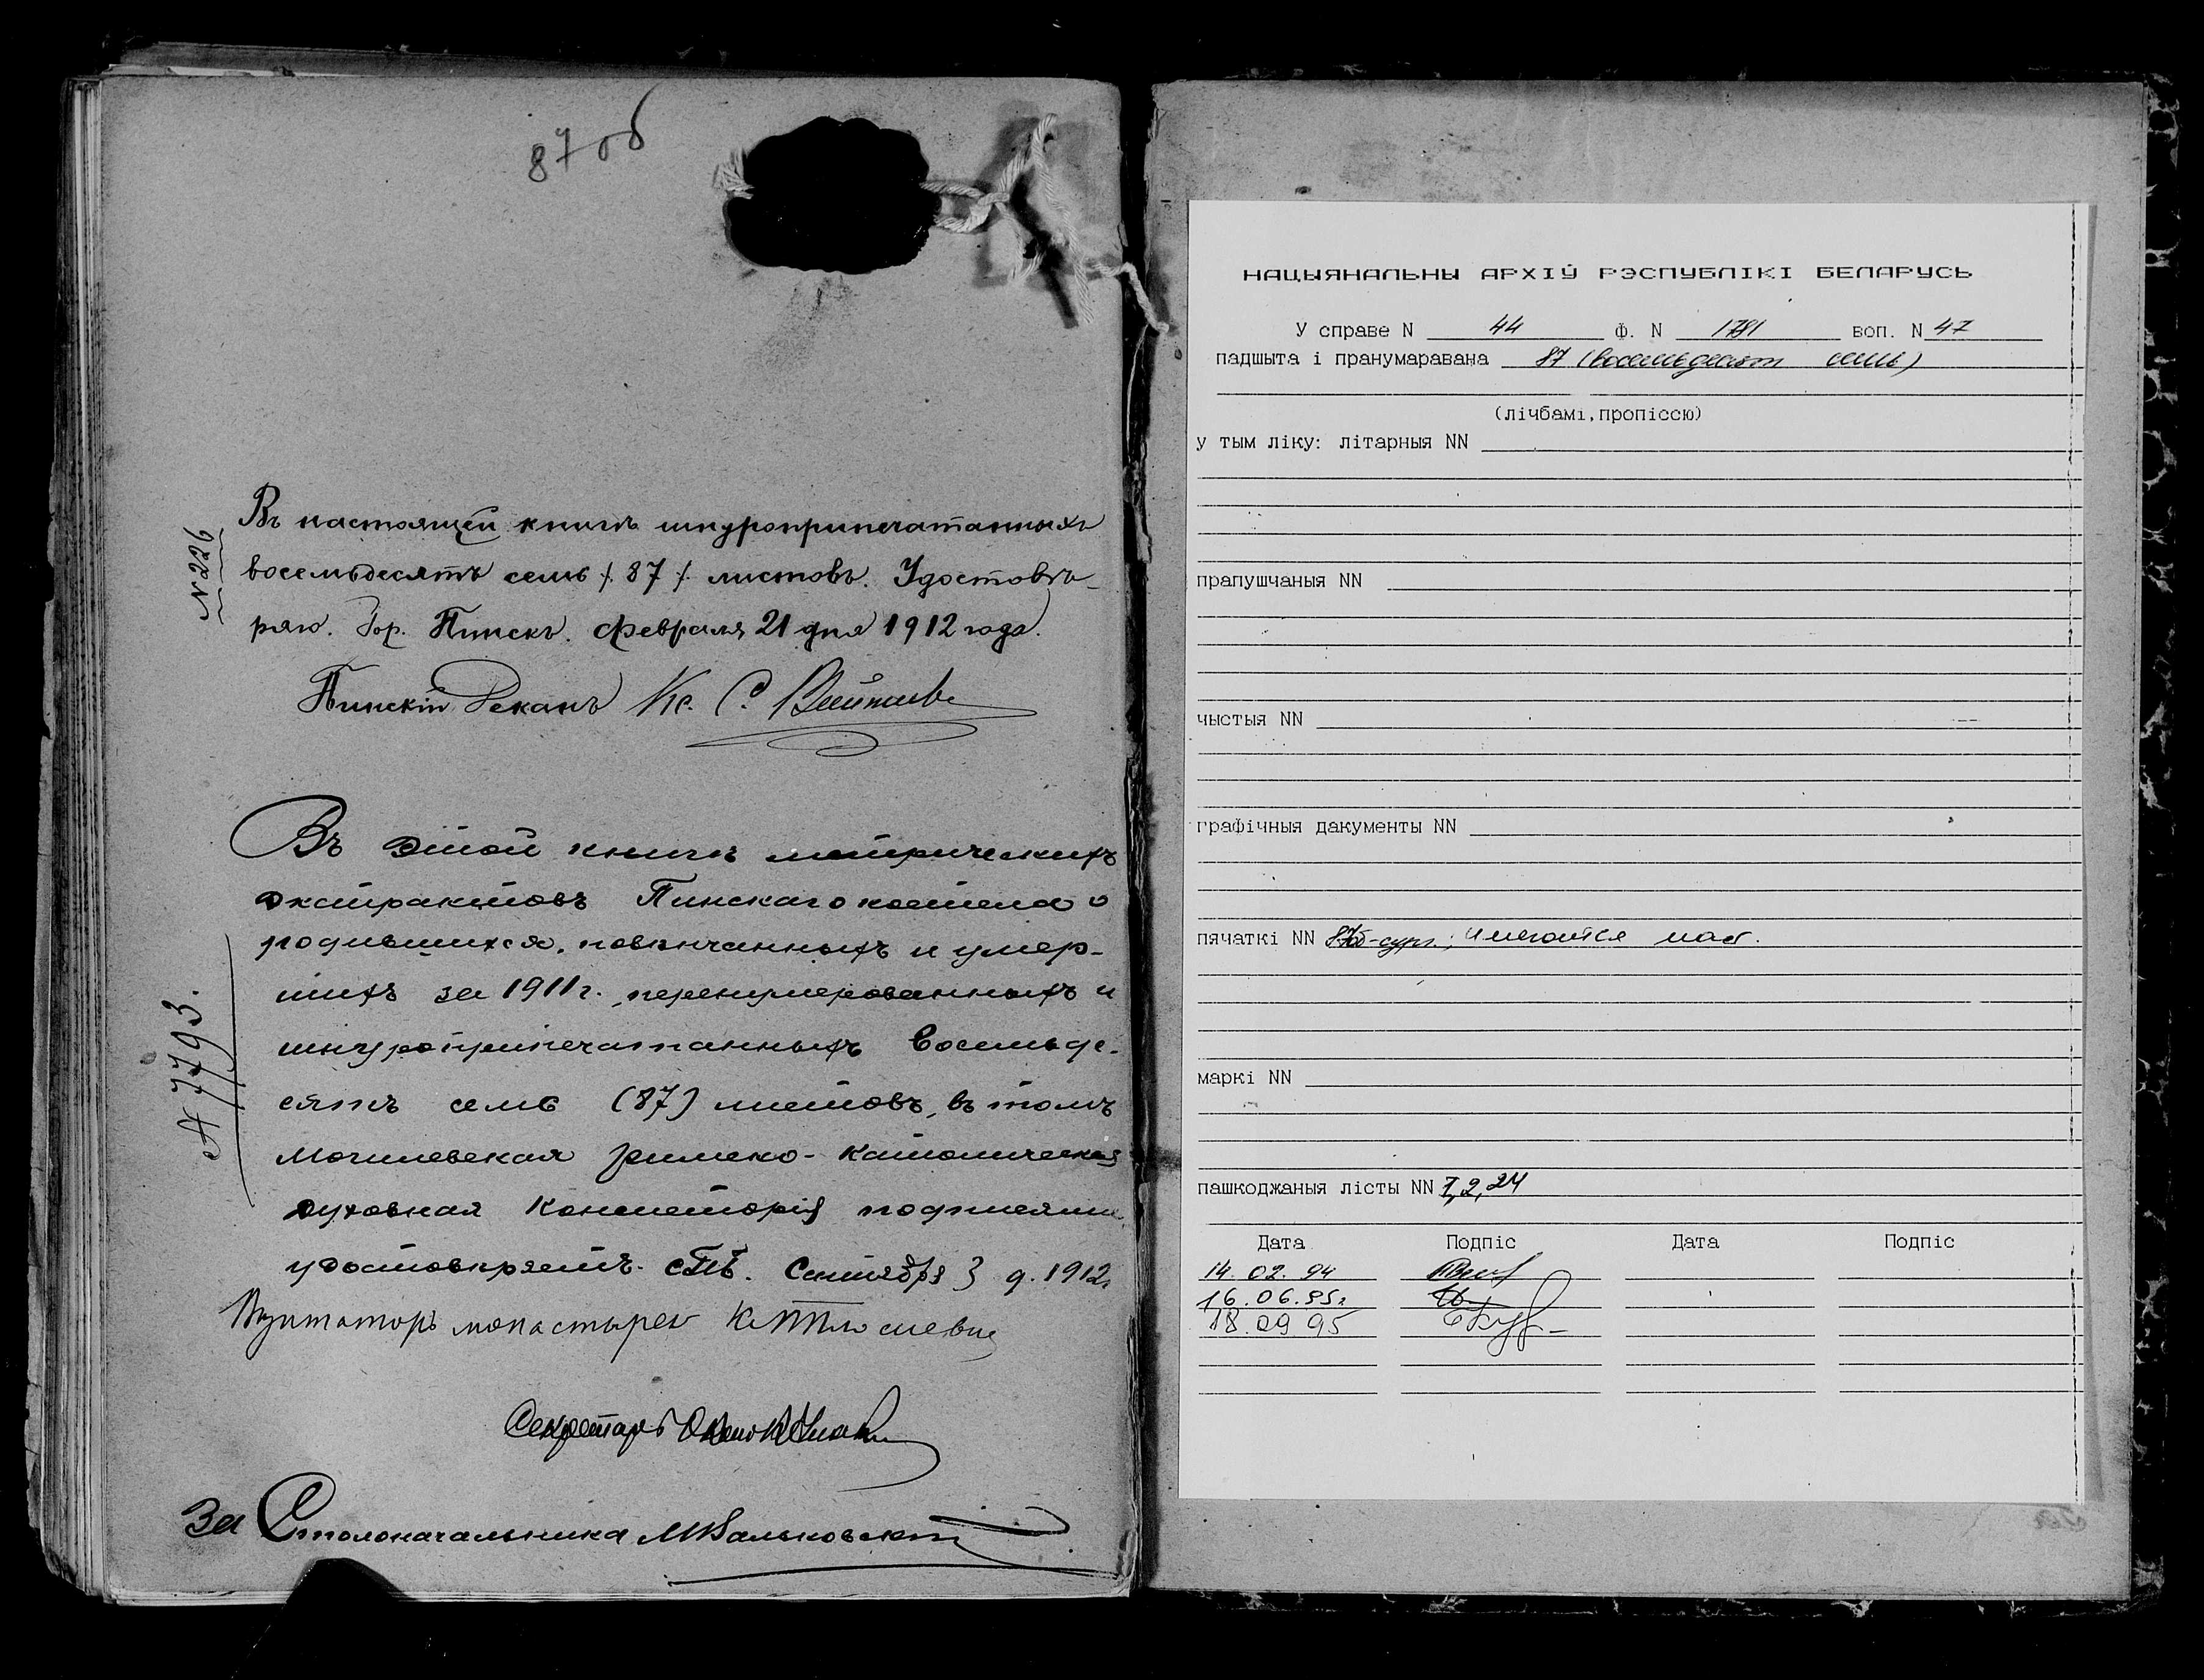 87об
№ 226
Въ настоящей книгѣ шнуроприпечатанныхъ
восемьдесятъ семь /. 87 /. листовъ. Удостовѣ-
ряю. Гор. Пинскъ. Февраля 21 дня 1912 года.
Пинскій Деканъ Кс. С.
Въ этой книгѣ метрическихъ
экстрактовъ Пинскаго костела о
родившихся, повѣнчанныхъ и умер-
шихъ за 1911 г. перенумерованныхъ и
шнуроприпечатанныхъ восемьде-
сятъ семь (87) листовъ, въ томъ
Могилевская римско-католическая
духовная Консисторія подписями
удостовѣряетъ. СПБ. Сентября 3 д. 1912 г.
№ 7793.
Визитаторъ монастырей
Секретарь
За Столоначальника
НАЦЫЯНАЛЬНЫ АРХІЎ РЭСПУБЛІКІ БЕЛАРУСЬ
У справе N 44 Ф. N 1781 воп. N 47
падшыта і пранумаравана 87 (восемьдесят семь)
(лічбамі, пропіссю)
у тым ліку: літарныя NN
прапушчаныя NN
чыстыя NN
графічныя дакументы NN
пячаткі NN 87об-сург.; имеются маст.
маркі NN
пашкоджаныя лісты NN 1,2,24
Дата Подпіс Дата Подпіс
14. 02. 94
16. 06. 95г
18. 09 95